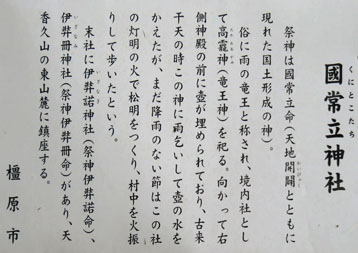 國常立神社
くにとこたち
祭神は國常立命(天地開闢とともに
現れた国土形成の神)。
俗に雨の竜王と称され、境内社とし
て高靇神(竜王神)を祀る。向かって右
側神殿の前に壺が埋められており、古来
干天の時この神に雨乞いして壺の水を
かえたが、まだ降雨のない節はこの社
の灯明の火で松明をつくり、村中を火振
りして歩いたという。
末社に伊弉諾神社(祭神伊弉諾命)、
伊弉冊神社(祭神伊弉冊命)があり、天
香久山の東山麓に鎮座する。
橿原市